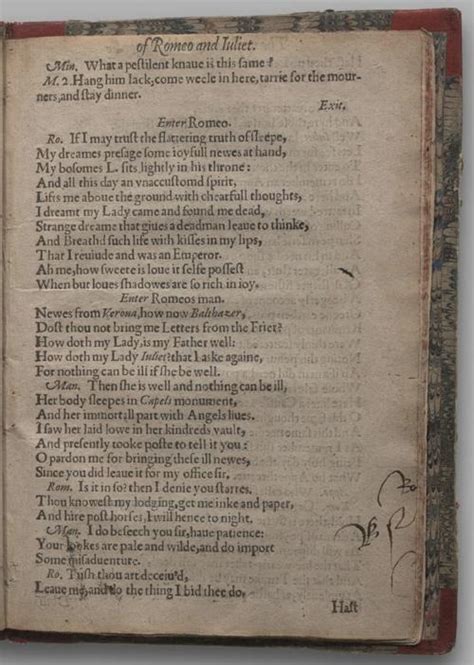 of Romeo and Iuliet.
Min. What a pestilent knaue is this same?
M. 2. Hang him Iack, come weele in here, tarrie for the mour-
ners, and stay dinner.
Exit.
Enter Romeo.
Ro. If I may trust the flattering truth of sleepe,
My dreames presage some ioyfull newes at hand,
My bosomes L. sits lightly in his throne:
And all this day an vnaccustomd spirit,
Lifts me aboue the ground with chearfull thoughts,
I dreamt my Lady came and found me dead,
Strange dreame that giues a deadman leaue to thinke,
And Breathd such life with kisses in my lips,
That I reuiude and was an Emperor.
Ah me, how sweete is loue it selfe possest
When but loues shadowes are so rich in ioy.
Enter Romeos man.
Newes from Verona, how now Balthazer,
Dost thou not bring me Letters from the Frier?
How doth my Lady, is my Father well:
How doth my Lady Iuliet? that I aske againe,
For nothing can be ill if she be well.
Man. Then she is well and nothing can be ill,
Her body sleepes in Capels monument,
And her immortall part with Angels liues.
I saw her laid lowe in her kindreds vault,
And presently tooke poste to tell it you:
O pardon me for bringing these ill newes,
Since you did leaue it for my office sir.
Rom. Is it in so? then I denie you starres.
Thou knowest my lodging, get me inke and paper,
And hire post horses, I will hence to night.
Man. I do beseech you sir, haue patience:
Your lookes are pale and wilde, and do import
Some misaduenture.
Ro. Tush thou art deceiu'd,
Leaue me, and do the thing I bid thee do,
Hast